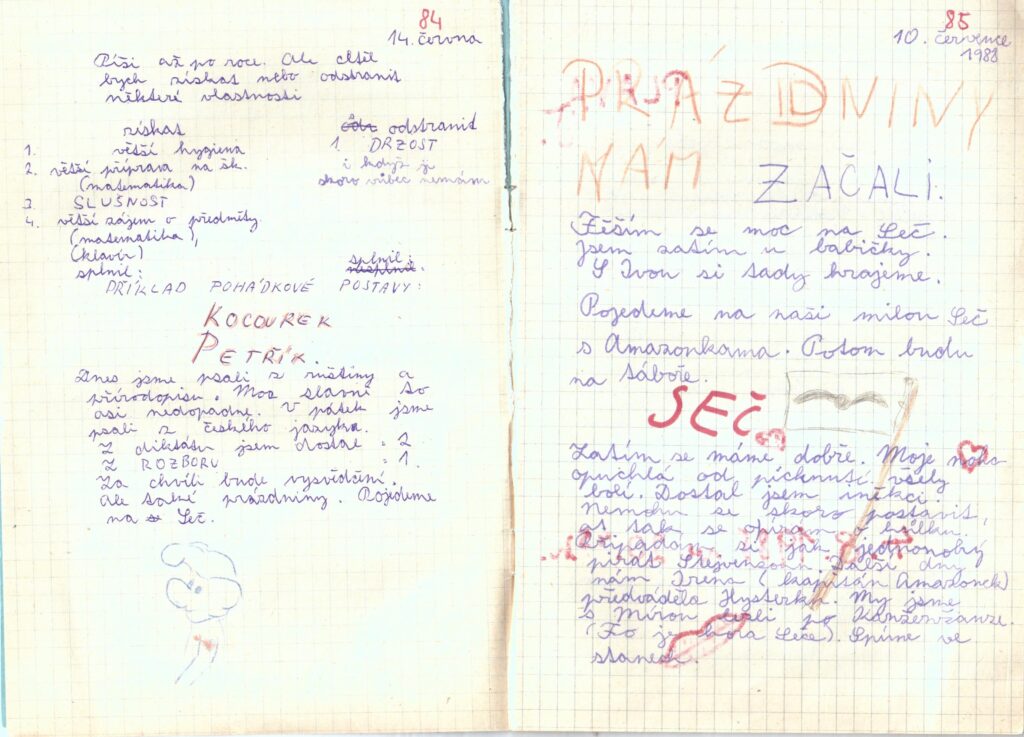 84
14. června
Píši až po roce. Ale chtěl
bych získat nebo odstranit
některé vlastnosti
získat
odstranit
1. větší hygiena
1. DRZOST
2. větší příprava na šk.
i když je
(matematika)
skoro vůbec nemám
3. SLUŠNOST
4. větší zájem o předměty
(matematika),
(klavír)
splnil:
splnil:
PŘÍKLAD POHÁDKOVÉ POSTAVY:
KOCOUREK
PETŘÍK.
Dnes jsme psali z ruštiny a
přírodopisu. Moc slavně to
asi nedopadne. V pátek jsme
psali z českého jazyka.
Z diktátu jsem dostal = 2
Z ROZBORU = 1.
Za chvíli bude vysvědčení.
Ale také prázdniny. Pojedeme
na Seč.
85
10. července
1988
PRÁZDNINY
NÁM ZAČALI.
Těším se moc na Seč.
jsem zatím u babičky.
S Ivou si tady hrajeme.
Pojedeme na naši milou Seč
s Amazonkama. Potom budu
na táboře.
SEČ
Zatím se máme dobře. Moje noha
opuchlá od píchnutí včely
bolí. Dostal jsem inekci.
Nemohu se skoro postavit,
až tak se opírám o hůlku.
Připadám si jak jednonohý
pirát Stejvnson. Další dny
nám Irena (kapitán Amazonek)
předváděla Hysterku. My jsme
s Mírou lezli po
(To je skála Seče). Spíme ve
stanech.